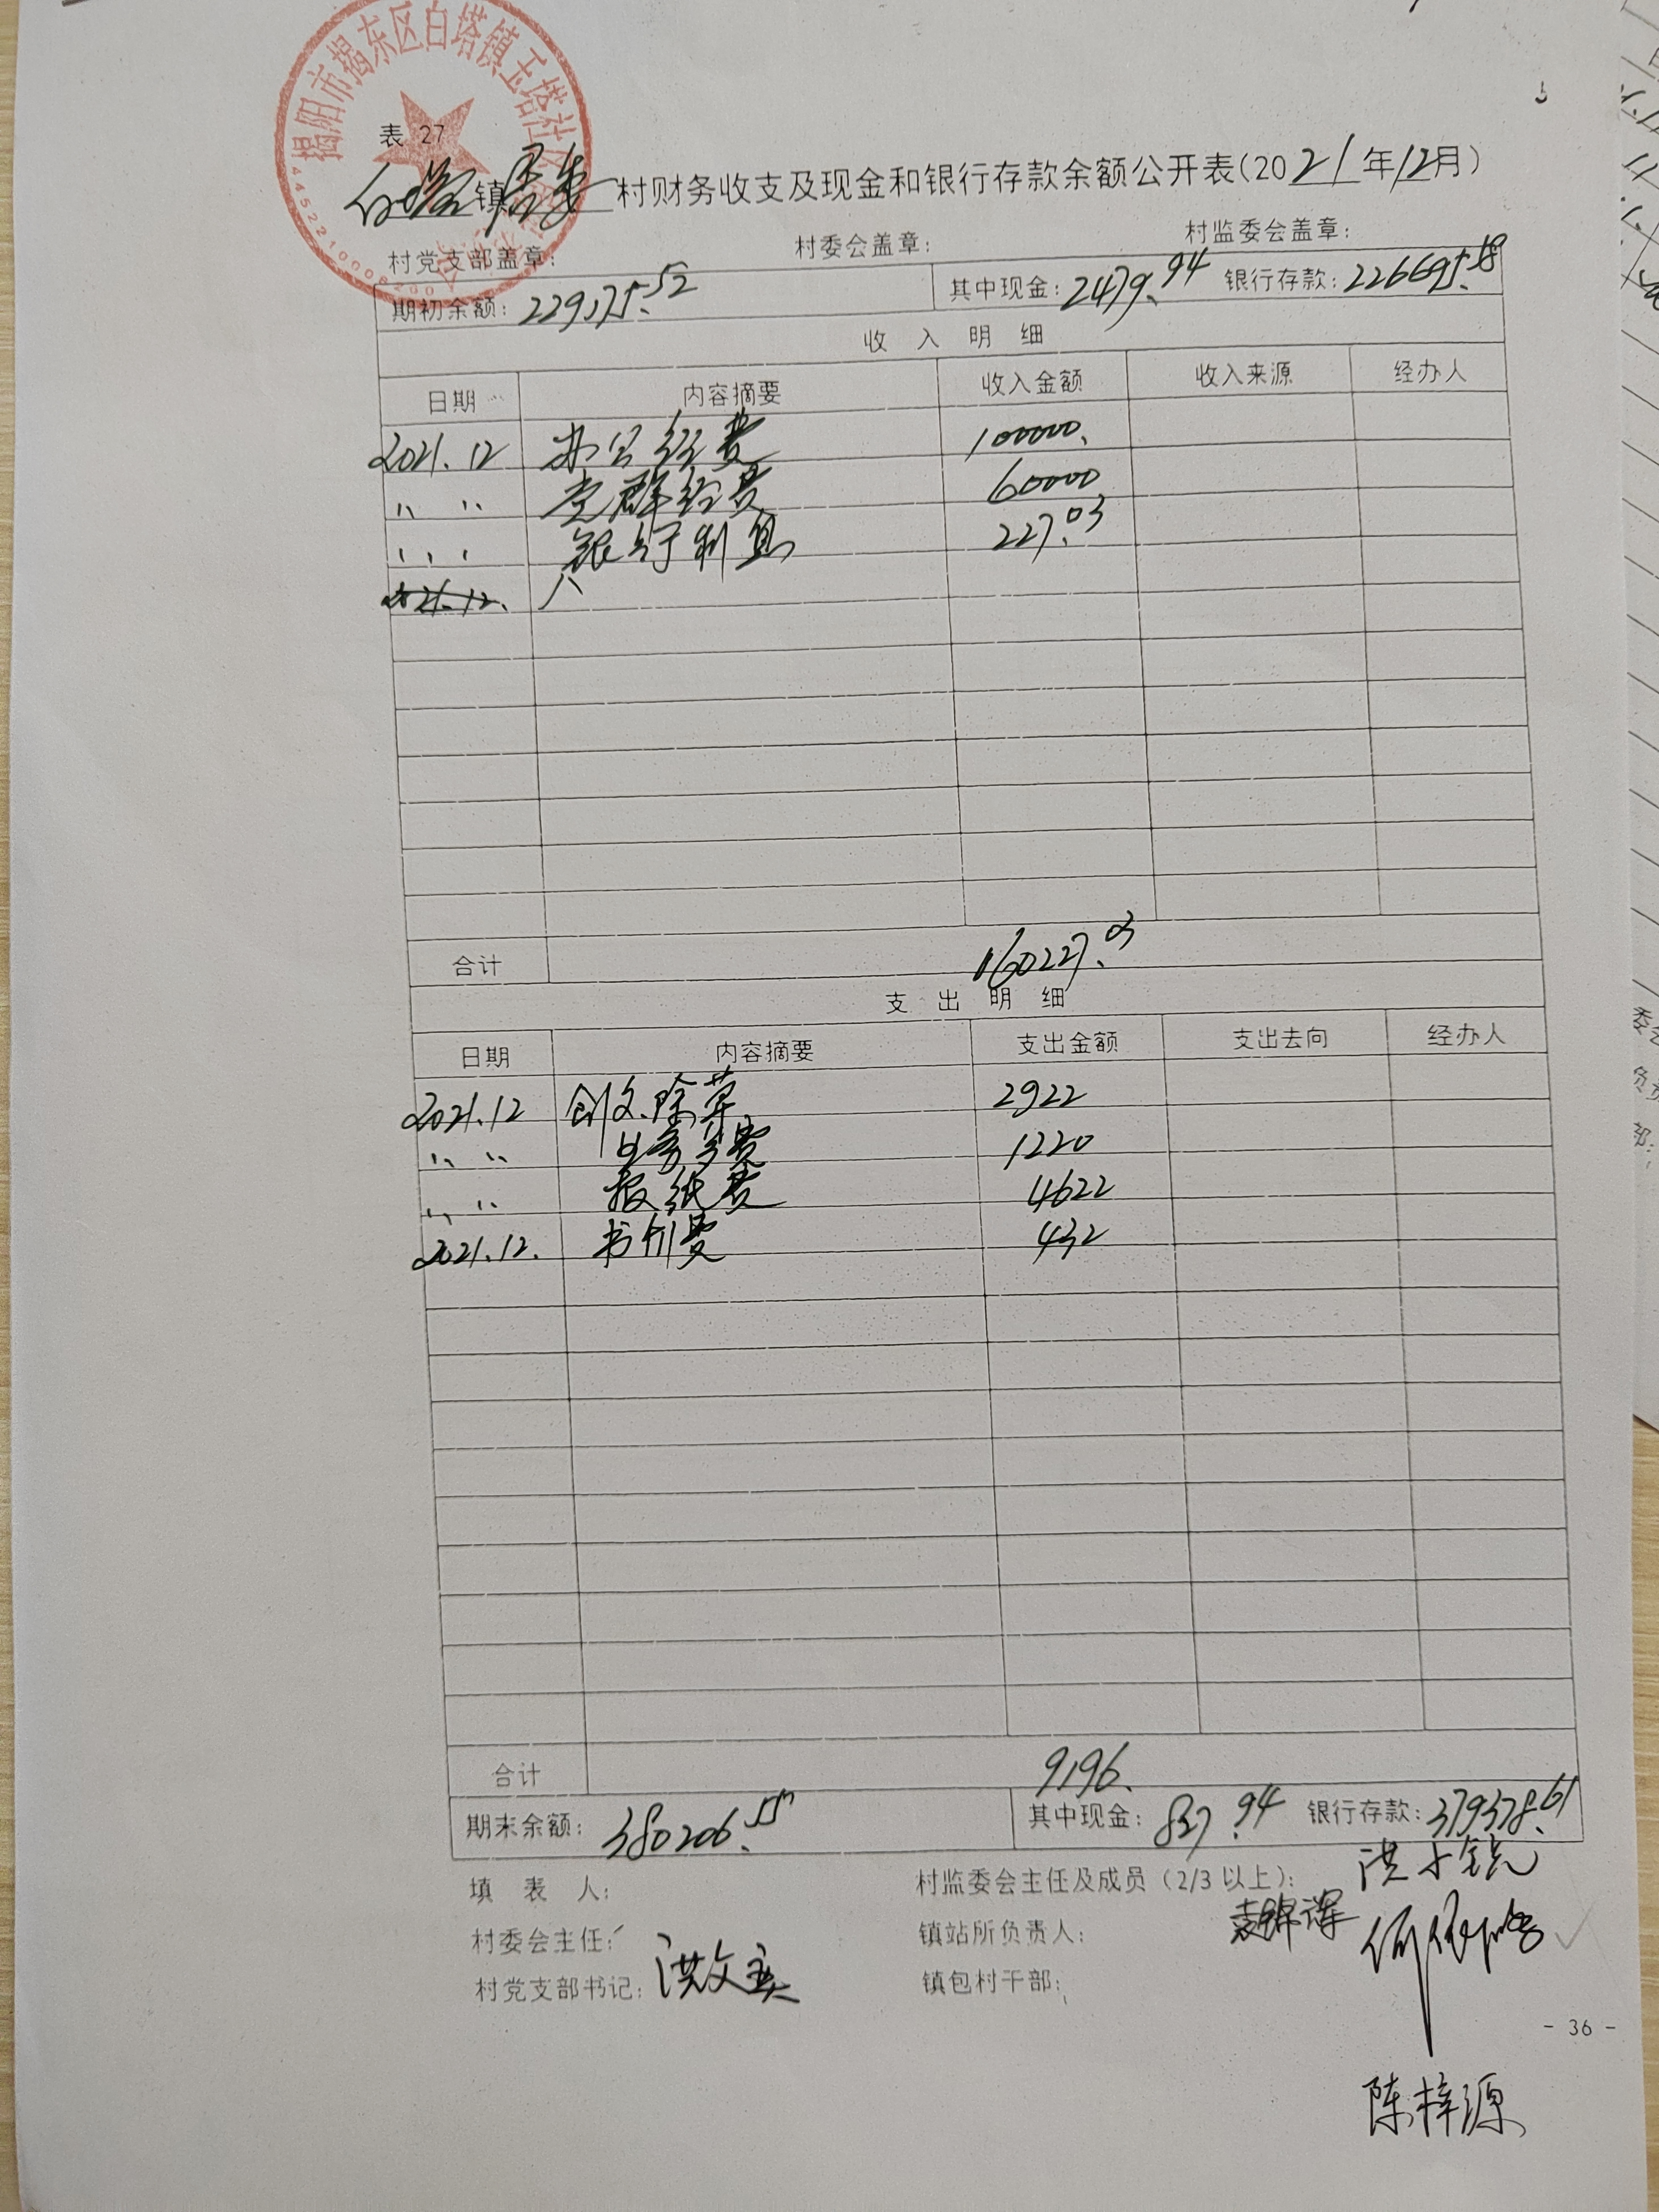 揭阳市揭东区白塔镇玉塔社区
表 27
白塔镇居委村财务收支及现金和银行存款余额公开表(2021年12月)
村党支部盖章: 村委会盖章: 村监委会盖章:
期初余额: 229175.52 其中现金: 2479.94 银行存款: 226695.58
收 入 明 细
日期 内容摘要 收入金额 收入来源 经办人
2021.12 办公经费 100000.
〃 〃 党群经费 60000
〃 〃 银行利息 227.03
合计 160227.03
支 出 明 细
日期 内容摘要 支出金额 支出去向 经办人
2021.12 创文.除草 2922
〃 〃 1220
〃 〃 报纸费 4622
2021.12. 书价费 432
合计 9196.
期末余额: 380206.55 其中现金: 827.94 银行存款: 379378.61
填 表 人: 村监委会主任及成员(2/3以上):
村委会主任: 镇站所负责人:
村党支部书记: 洪文 镇包村干部:
- 36 -
陈梓源